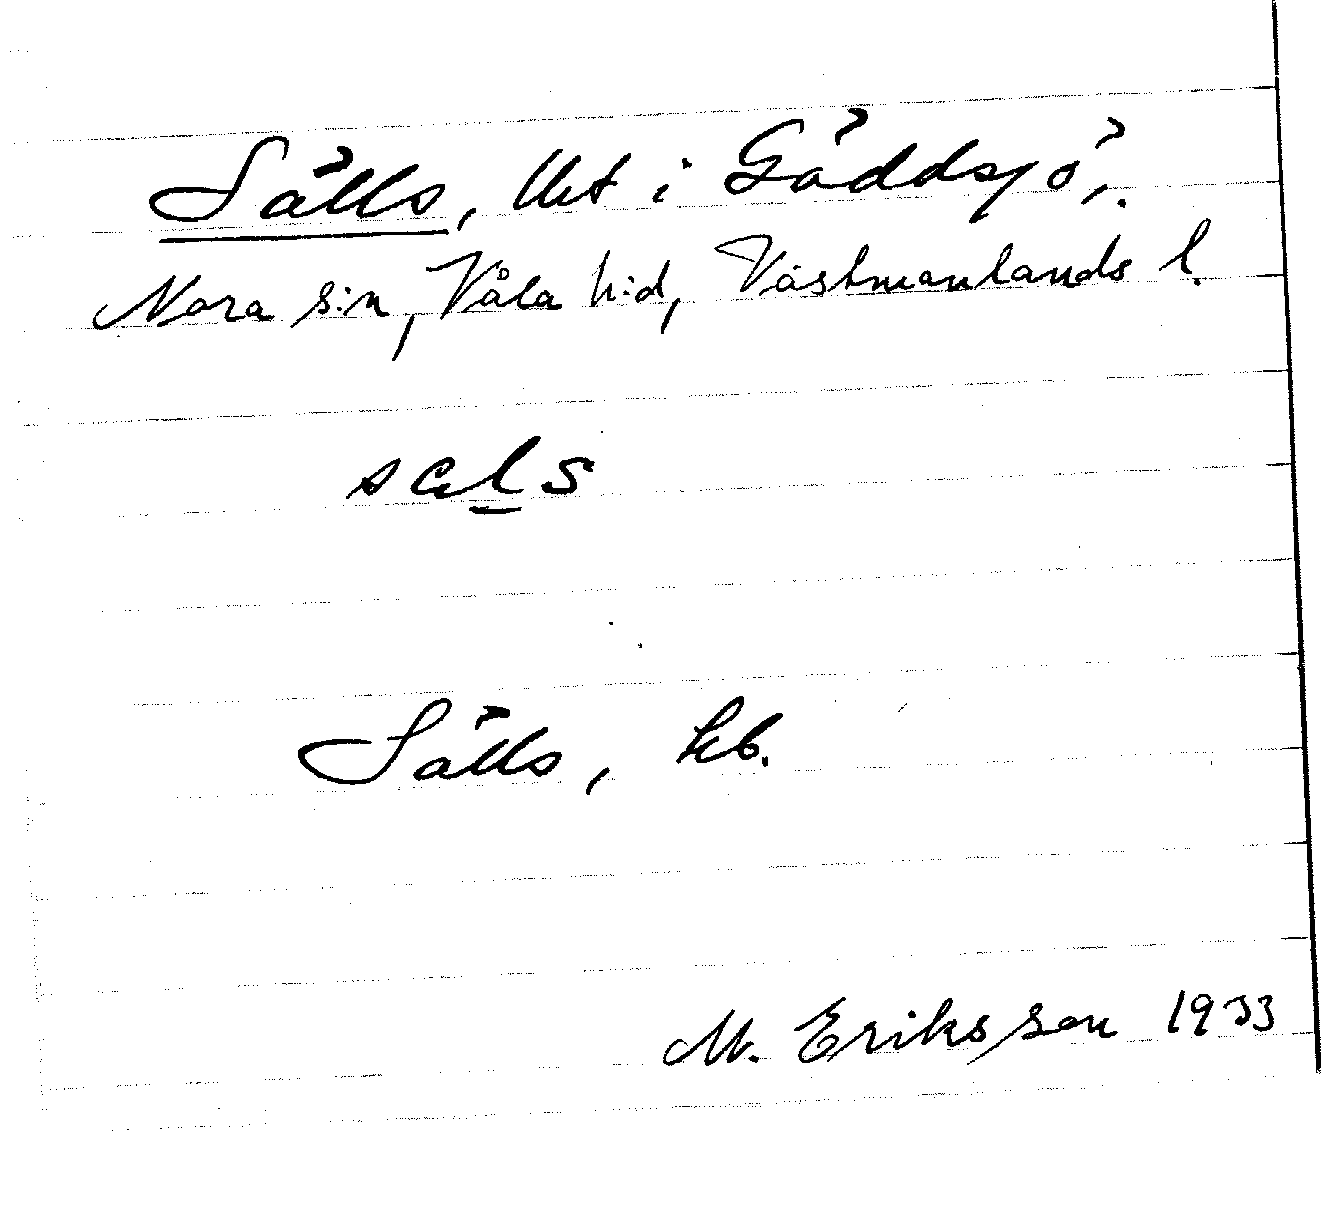 Sälls, llet i Gäddsjö,.
Nora s:n, Våla h:d, Västmanlands l.
sals
Sälls, kb.
M. Eriksson 1933